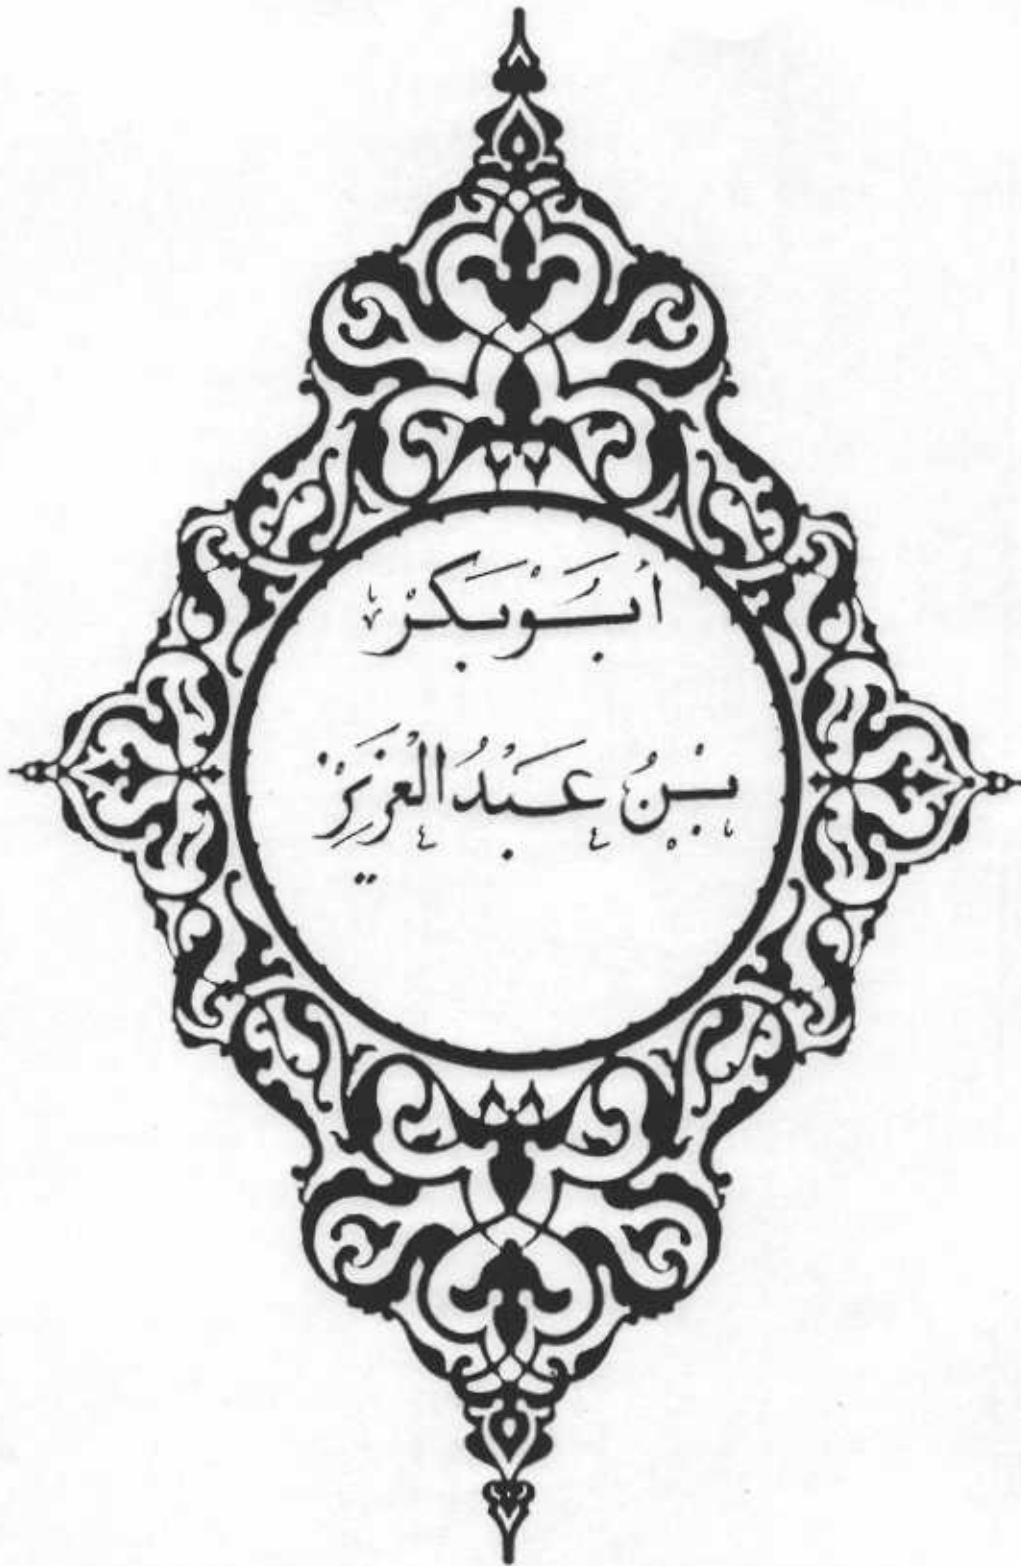 أبو بكر
بن عبد العزيز